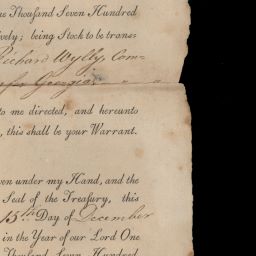 ne Thousand Seven Hundred
ively; being Stock to be trans-
Richard Wylly, Com-
for Georgia
to me directed, and hereunto
, this shall be your Warrant.
ven under my Hand, and the
Seal of the Treasury, this
15th Day of December
in the Year of our Lord One
Thousand Seven Hundred